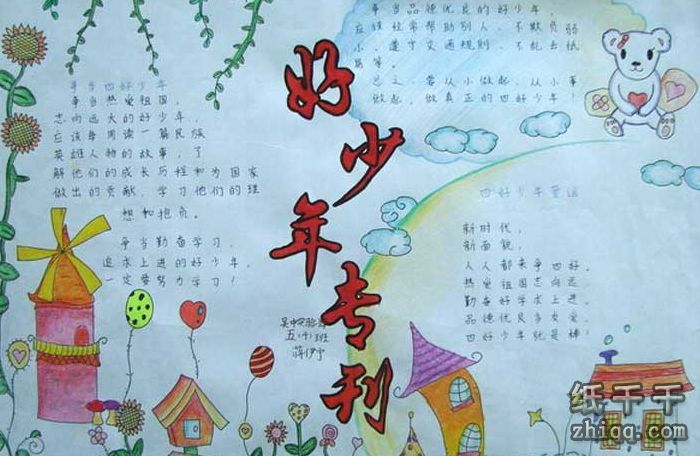 好少年专刊
争当四好少年
争当热爱祖国，
志向远大的好少年，
应该每周读一篇民族
英雄人物的故事，了
解他们的成长历程和为国家
做出的贡献，学习他们的理
想和抱负。
争当勤奋学习，
追求上进的好少年，
一定要努力学习！
争当品德优良的好少年，
应该经常帮助别人，不欺负弱
小，遵守交通规则，不乱丢纸
屑等。
总之，要从小做起，从小事
做起，做真正的四好少年！
四好少年童谣
新时代，
新面貌，
人人都来争四好。
热爱祖国志向远，
勤奋好学求上进，
品德优良多友爱，
四好少年就是棒！
班
纸干干
zhigg.com